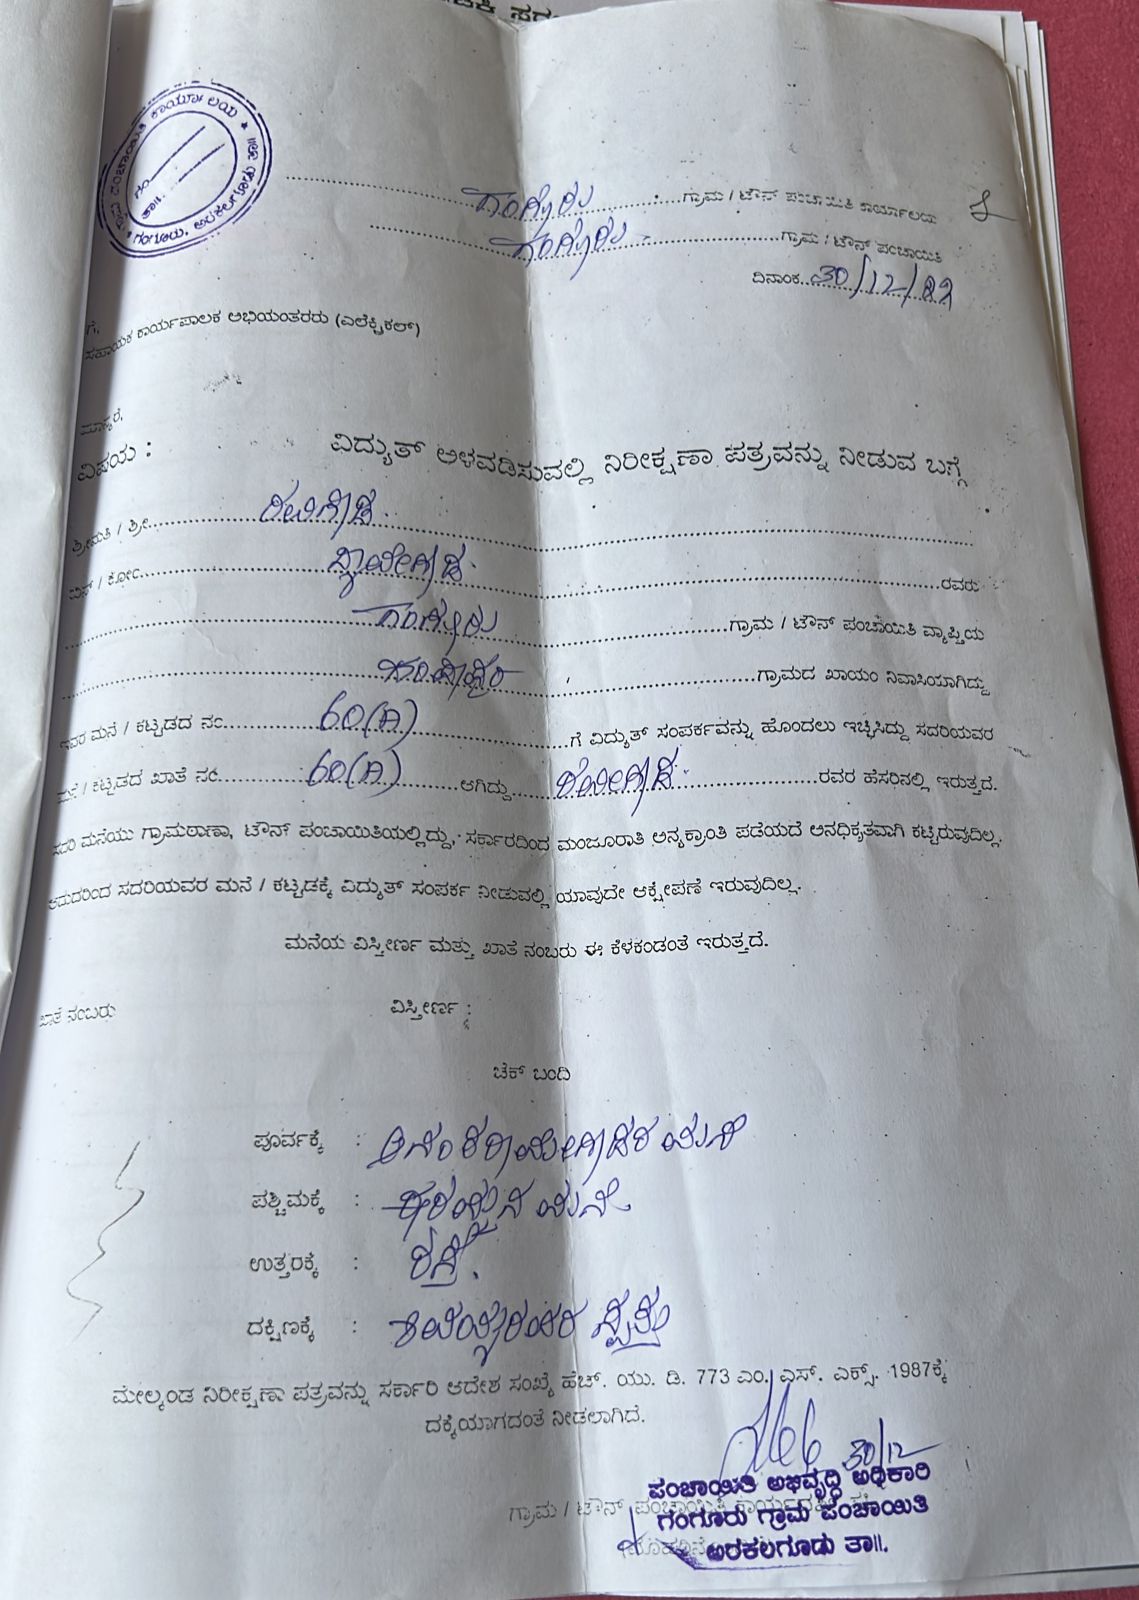 ಗಂಗೂರು ಗ್ರಾಮ / ಟೌನ್ ಪಂಚಾಯಿತಿ ಕಾರ್ಯಾಲಯ
ಗಂಗೂರು ಗ್ರಾಮ / ಟೌನ್ ಪಂಚಾಯಿತಿ
ದಿನಾಂಕ 30/12/
ಗೆ,
ಸಹಾಯಕ ಕಾರ್ಯಪಾಲಕ ಅಭಿಯಂತರರು (ಎಲೆಕ್ಟ್ರಿಕಲ್)
ಮಾನ್ಯರೆ,
ವಿಷಯ : ವಿದ್ಯುತ್ ಅಳವಡಿಸುವಲ್ಲಿ ನಿರೀಕ್ಷಣಾ ಪತ್ರವನ್ನು ನೀಡುವ ಬಗ್ಗೆ
ಶ್ರೀಮತಿ / ಶ್ರೀ ರವಿಗೌಡ
ಬಿನ್ / ಕೋಂ ರವರು
ಗಂಗೂರು ಗ್ರಾಮ / ಟೌನ್ ಪಂಚಾಯಿತಿ ವ್ಯಾಪ್ತಿಯ
ಗ್ರಾಮದ ಖಾಯಂ ನಿವಾಸಿಯಾಗಿದ್ದು
ಇವರ ಮನೆ / ಕಟ್ಟಡದ ನಂ 60(A) ಗೆ ವಿದ್ಯುತ್ ಸಂಪರ್ಕವನ್ನು ಹೊಂದಲು ಇಚ್ಛಿಸಿದ್ದು ಸದರಿಯವರ
ಮನೆ / ಕಟ್ಟಡದ ಖಾತೆ ನಂ 60(A) ಆಗಿದ್ದು ರವಿಗೌಡ ರವರ ಹೆಸರಿನಲ್ಲಿ ಇರುತ್ತದೆ.
ಸದರಿ ಮನೆಯು ಗ್ರಾಮಠಾಣಾ, ಟೌನ್ ಪಂಚಾಯಿತಿಯಲ್ಲಿದ್ದು, ಸರ್ಕಾರದಿಂದ ಮಂಜೂರಾತಿ ಅನ್ಯಕ್ರಾಂತಿ ಪಡೆಯದೆ ಅನಧಿಕೃತವಾಗಿ ಕಟ್ಟಿರುವುದಿಲ್ಲ.
ಆದುದರಿಂದ ಸದರಿಯವರ ಮನೆ / ಕಟ್ಟಡಕ್ಕೆ ವಿದ್ಯುತ್ ಸಂಪರ್ಕ ನೀಡುವಲ್ಲಿ ಯಾವುದೇ ಆಕ್ಷೇಪಣೆ ಇರುವುದಿಲ್ಲ.
ಮನೆಯ ವಿಸ್ತೀರ್ಣ ಮತ್ತು ಖಾತೆ ನಂಬರು ಈ ಕೆಳಕಂಡಂತೆ ಇರುತ್ತದೆ.
ಖಾತೆ ನಂಬರು ವಿಸ್ತೀರ್ಣ :
ಚೆಕ್ ಬಂದಿ
ಪೂರ್ವಕ್ಕೆ : ಮನೆ
ಪಶ್ಚಿಮಕ್ಕೆ : ಮನೆ
ಉತ್ತರಕ್ಕೆ : ರಸ್ತೆ.
ದಕ್ಷಿಣಕ್ಕೆ : ಸ್ವತ್ತು
ಮೇಲ್ಕಂಡ ನಿರೀಕ್ಷಣಾ ಪತ್ರವನ್ನು ಸರ್ಕಾರಿ ಆದೇಶ ಸಂಖ್ಯೆ ಹೆಚ್. ಯು. ಡಿ. 773 ಎಂ. ಎಸ್. ಎಕ್ಸ್. 1987ಕ್ಕೆ
ದಕ್ಕೆಯಾಗದಂತೆ ನೀಡಲಾಗಿದೆ.
30/12
ಪಂಚಾಯಿತಿ ಅಭಿವೃದ್ಧಿ ಅಧಿಕಾರಿ
ಗಂಗೂರು ಗ್ರಾಮ ಪಂಚಾಯಿತಿ
ಅರಕಲಗೂಡು ತಾ॥.